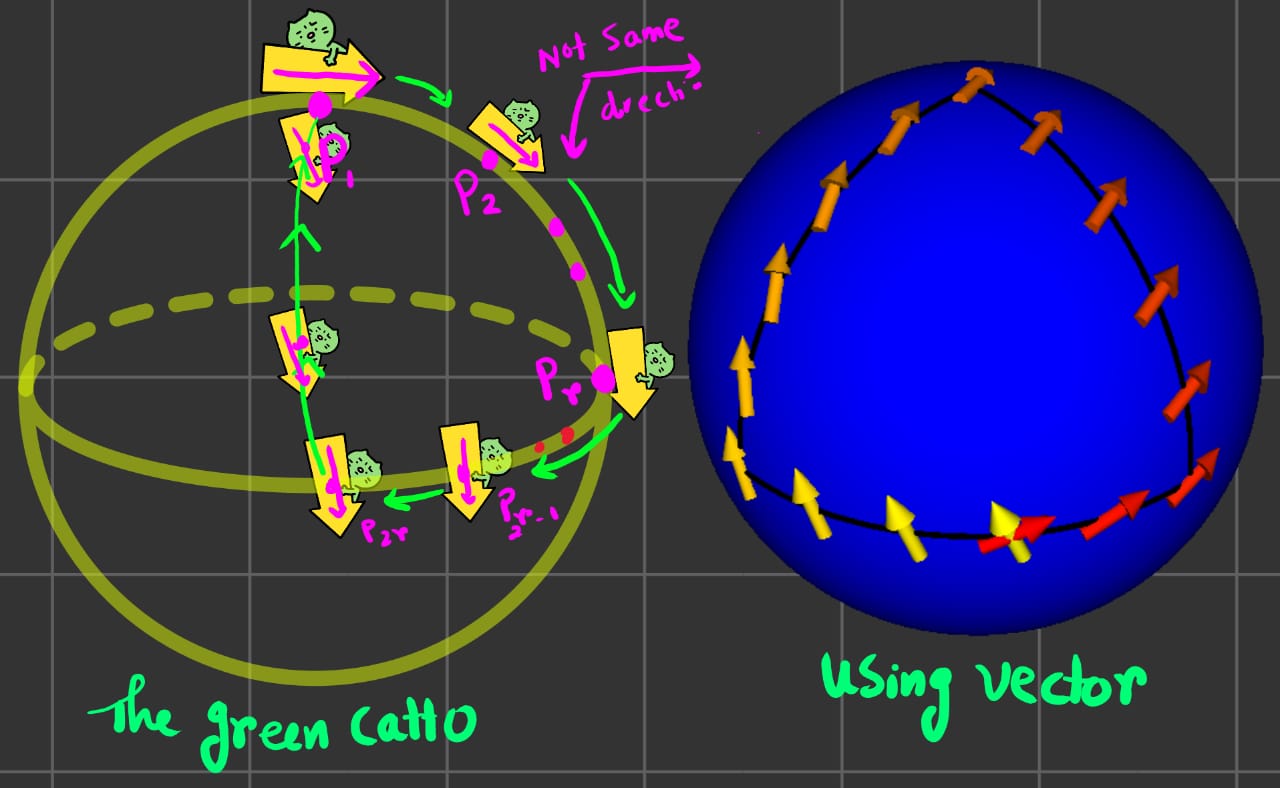 Not Same
drecti.
P1
P2
Pr
P2r-1
P2r
The green Catto
Using vector